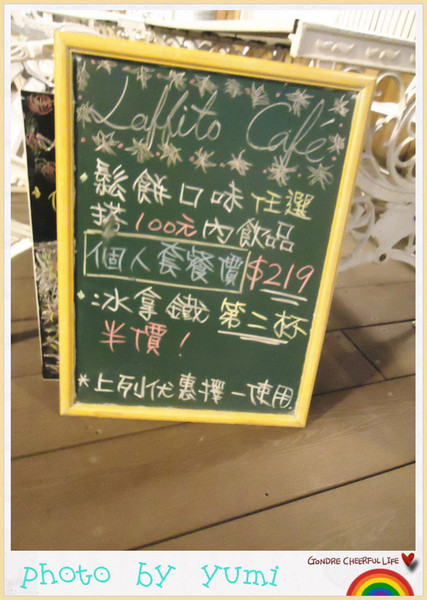 Laffito Café
鬆餅口味任選
搭100元內飲品
個人套餐價$219
冰拿鐵 第二杯
半價!
*上列优惠擇一使用
photo by yumi
GONDRE CHEERFUL LIFE